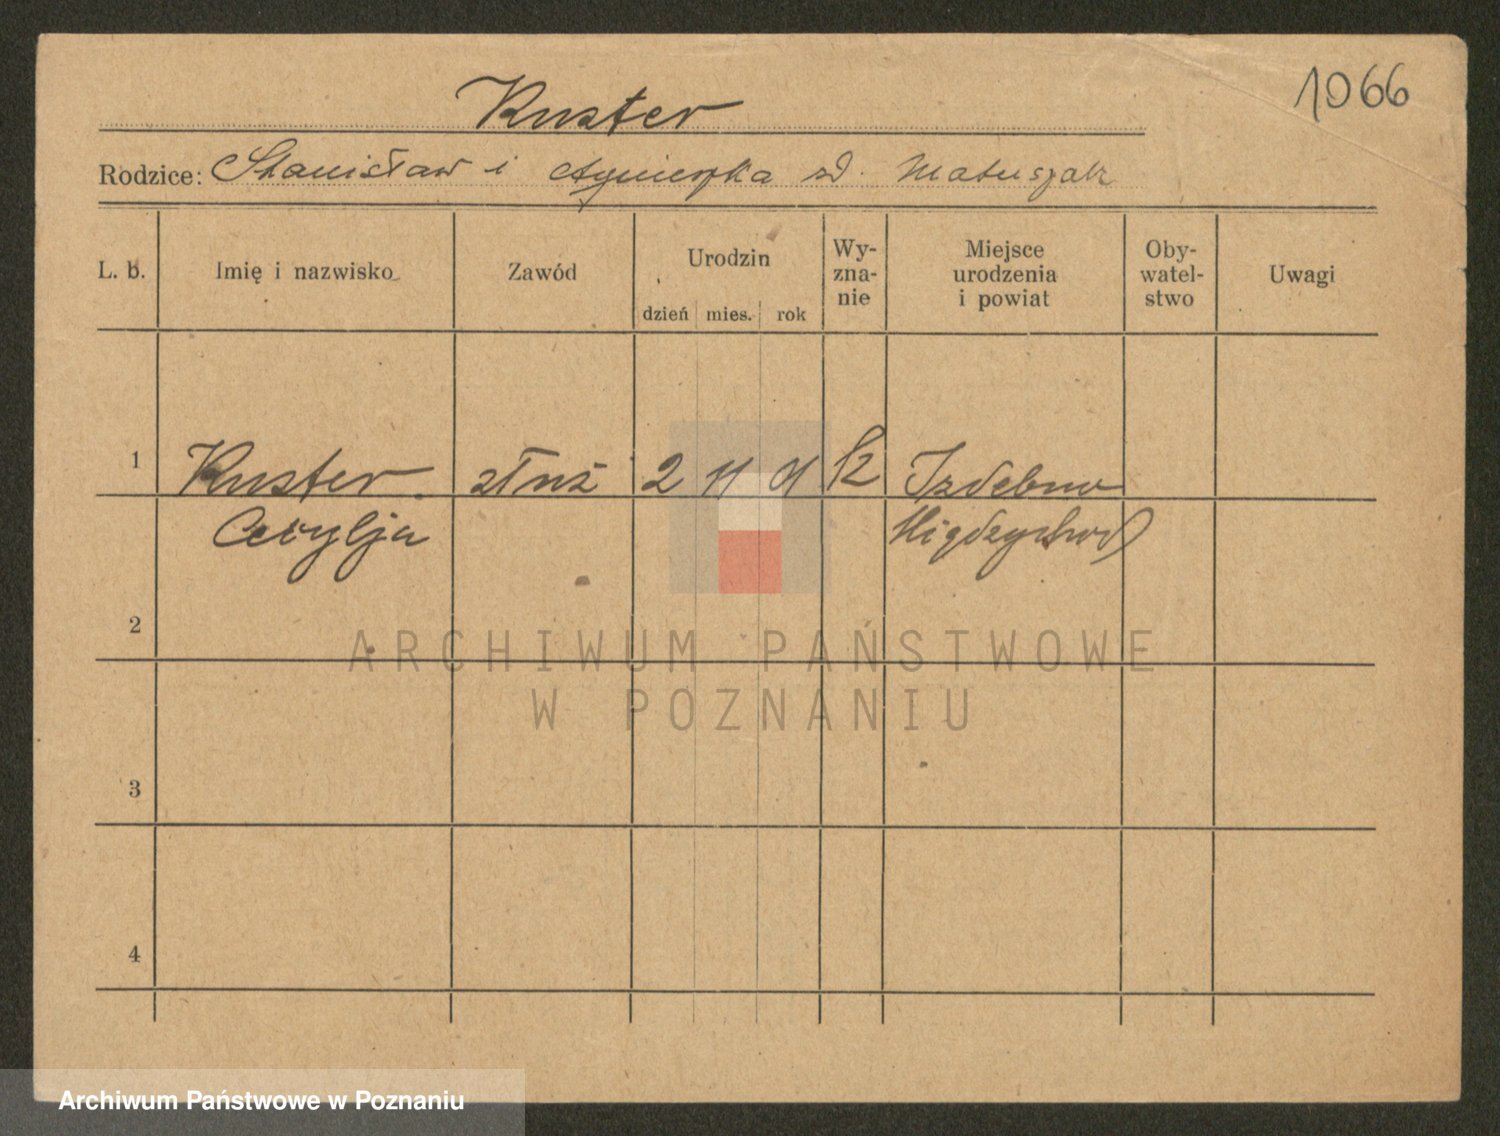 1066
Kuster
Rodzice: Stanisław i Agnieszka zd. Matuszak
L. b. Imię i nazwisko Zawód Urodzin dzień mies. rok Wy-zna-nie Miejsce urodzenia i powiat Oby-watel-stwo Uwagi
1 Kuster służ 2 11 k Izdebno
Cecylja Międzychod
2
ARCHIWUM PAŃSTWOWE
W POZNANIU
3
4
Archiwum Państwowe w Poznaniu